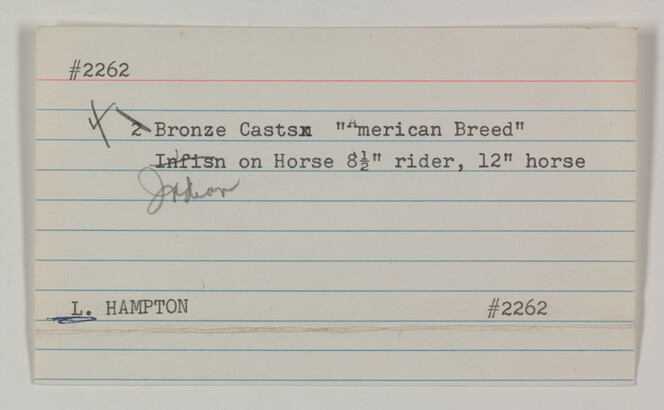 #2262
4 2 Bronze Castsx "American Breed"
Infisn on Horse 8½" rider, 12" horse
Indian
L. HAMPTON #2262